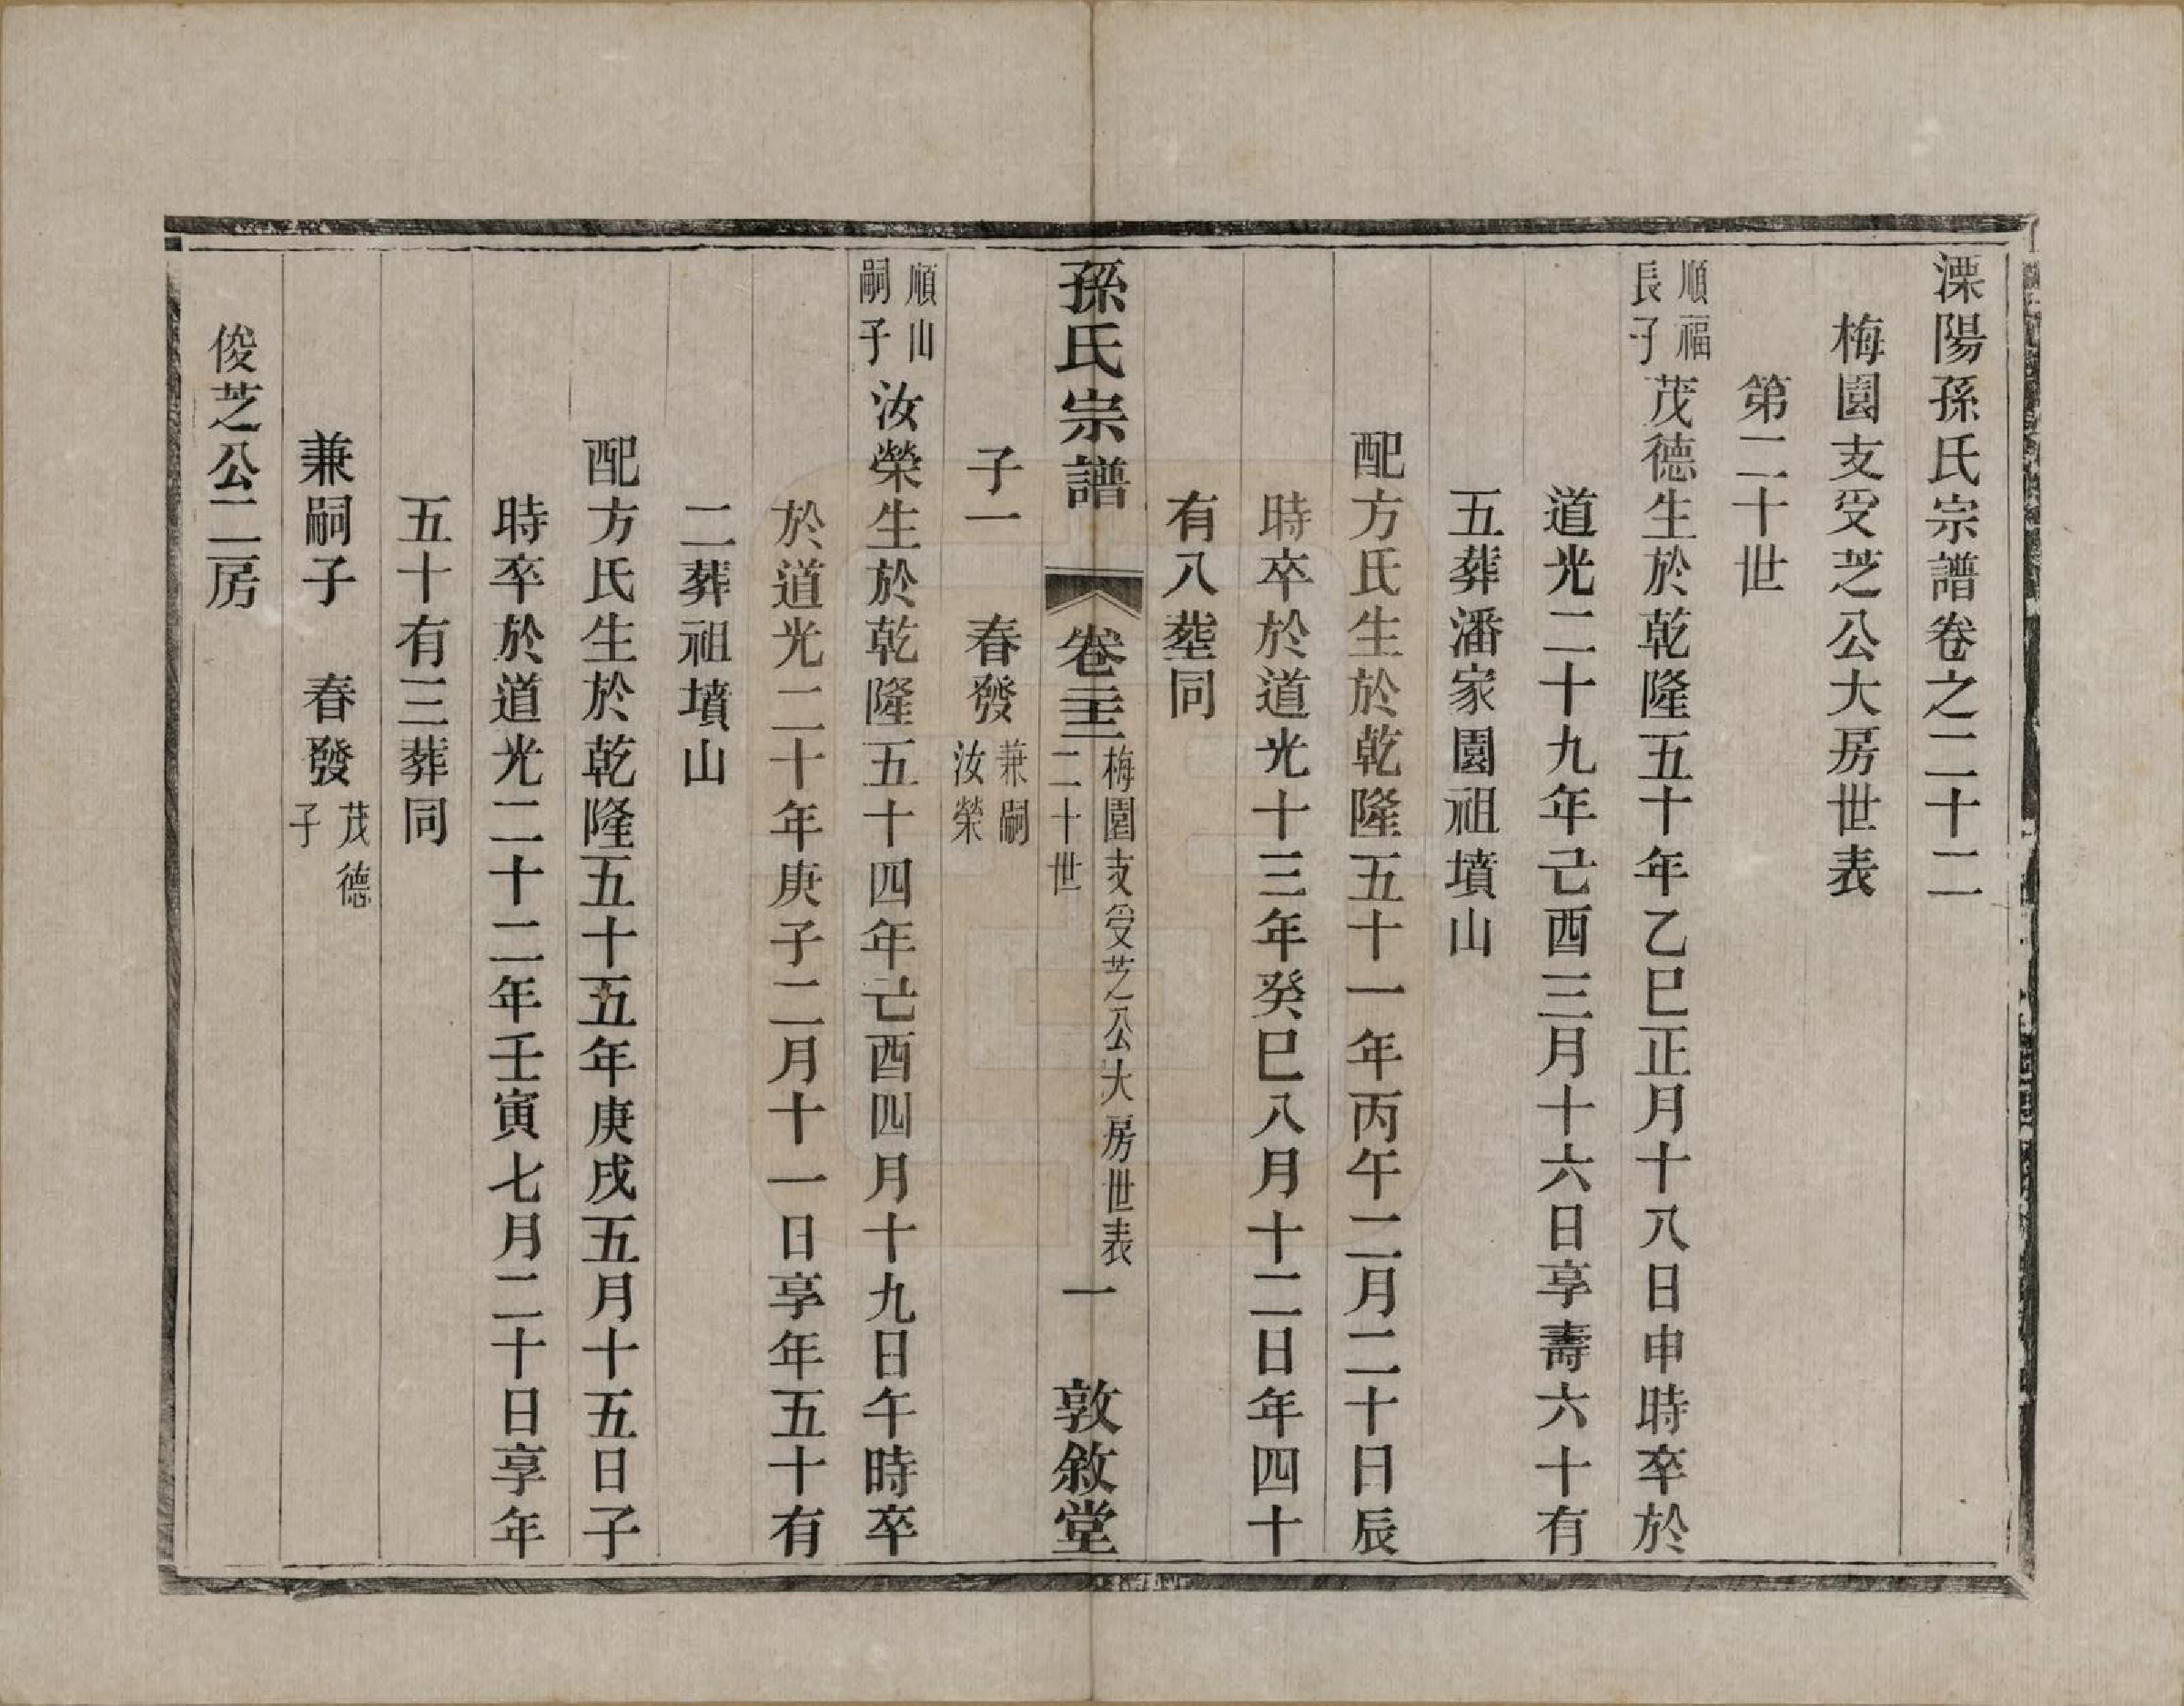 溧陽孫氏宗譜卷之二十二
梅園支受芝公大房世表
第二十世
順福長子茂德生於乾隆五十年乙巳正月十八日申時卒於
道光二十九年己酉三月十六日享壽六十有
五葬潘家園祖墳山
配方氏生於乾隆五十一年丙午二月二十日辰
時卒於道光十三年癸巳八月十二日年四十
有八塟同
子一　春發兼嗣汝榮
孫氏宗譜　卷二十二　梅園支受芝公大房世表二十世　一　敦敘堂
順山嗣子汝榮生於乾隆五十四年己酉四月十九日午時卒
於道光二十年庚子二月十一日享年五十有
二葬祖墳山
配方氏生於乾隆五十五年庚戌五月十五日子
時卒於道光二十二年壬寅七月二十日享年
五十有三葬同
兼嗣子　春發茂德子
俊芝公二房